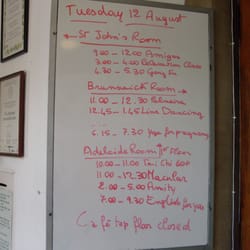 Tuesday 12 August
St John's Room
9.00 - 12.00 Amigos
3.00 - 4.00 Relaxation Class
4.30 - 5.30 Gong Fu
Brunswick Room
11.00 - 12.30
12.45 - 1.45 Line Dancing
6.15 - 7.30 yoga for pregnancy
Adelaide Room 1st Floor
10.00 - 11.00 Tai Chi 60+
11.00 - 12.30 Macular
2.00 - 5.00 Amity
7.00 - 9.30 English for
Café top floor closed